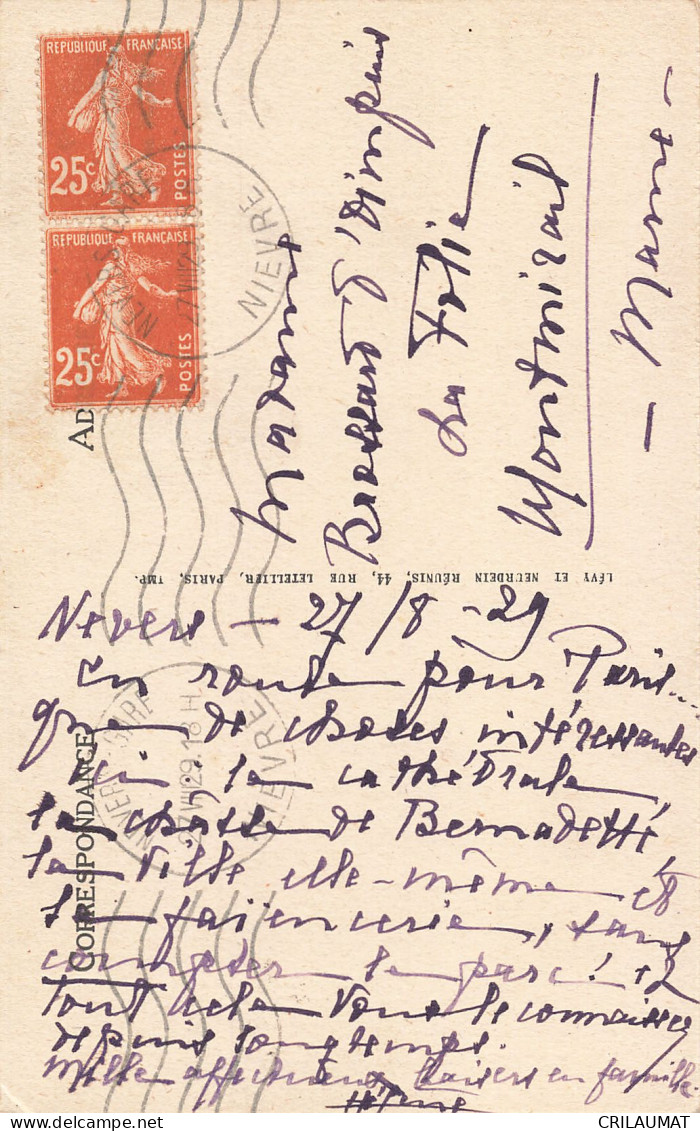 RÉPUBLIQUE FRANÇAISE
25c
POSTES
RÉPUBLIQUE FRANÇAISE
25c
POSTES
NEVERS GARE
NIEVRE
Madame
Brossard d'
La Folie
Montmirail
- Marne -
LÉVY ET NEURDEIN RÉUNIS, 44, RUE LETELLIER, PARIS, IMP.
CORRESPONDANCE
NEVERS GARE
27 VIII 29 18 H.
NIEVRE
Nevers - 27/8 - 29
En route pour Paris...
que de choses intéressantes
ici: la cathédrale,
la châsse de Bernadette,
la ville elle-même et
la faïencerie, sans
compter le parc! et
tout cela vous le connaissez
depuis longtemps.
Mille affectueux baisers en famille.
CRILAUMAT